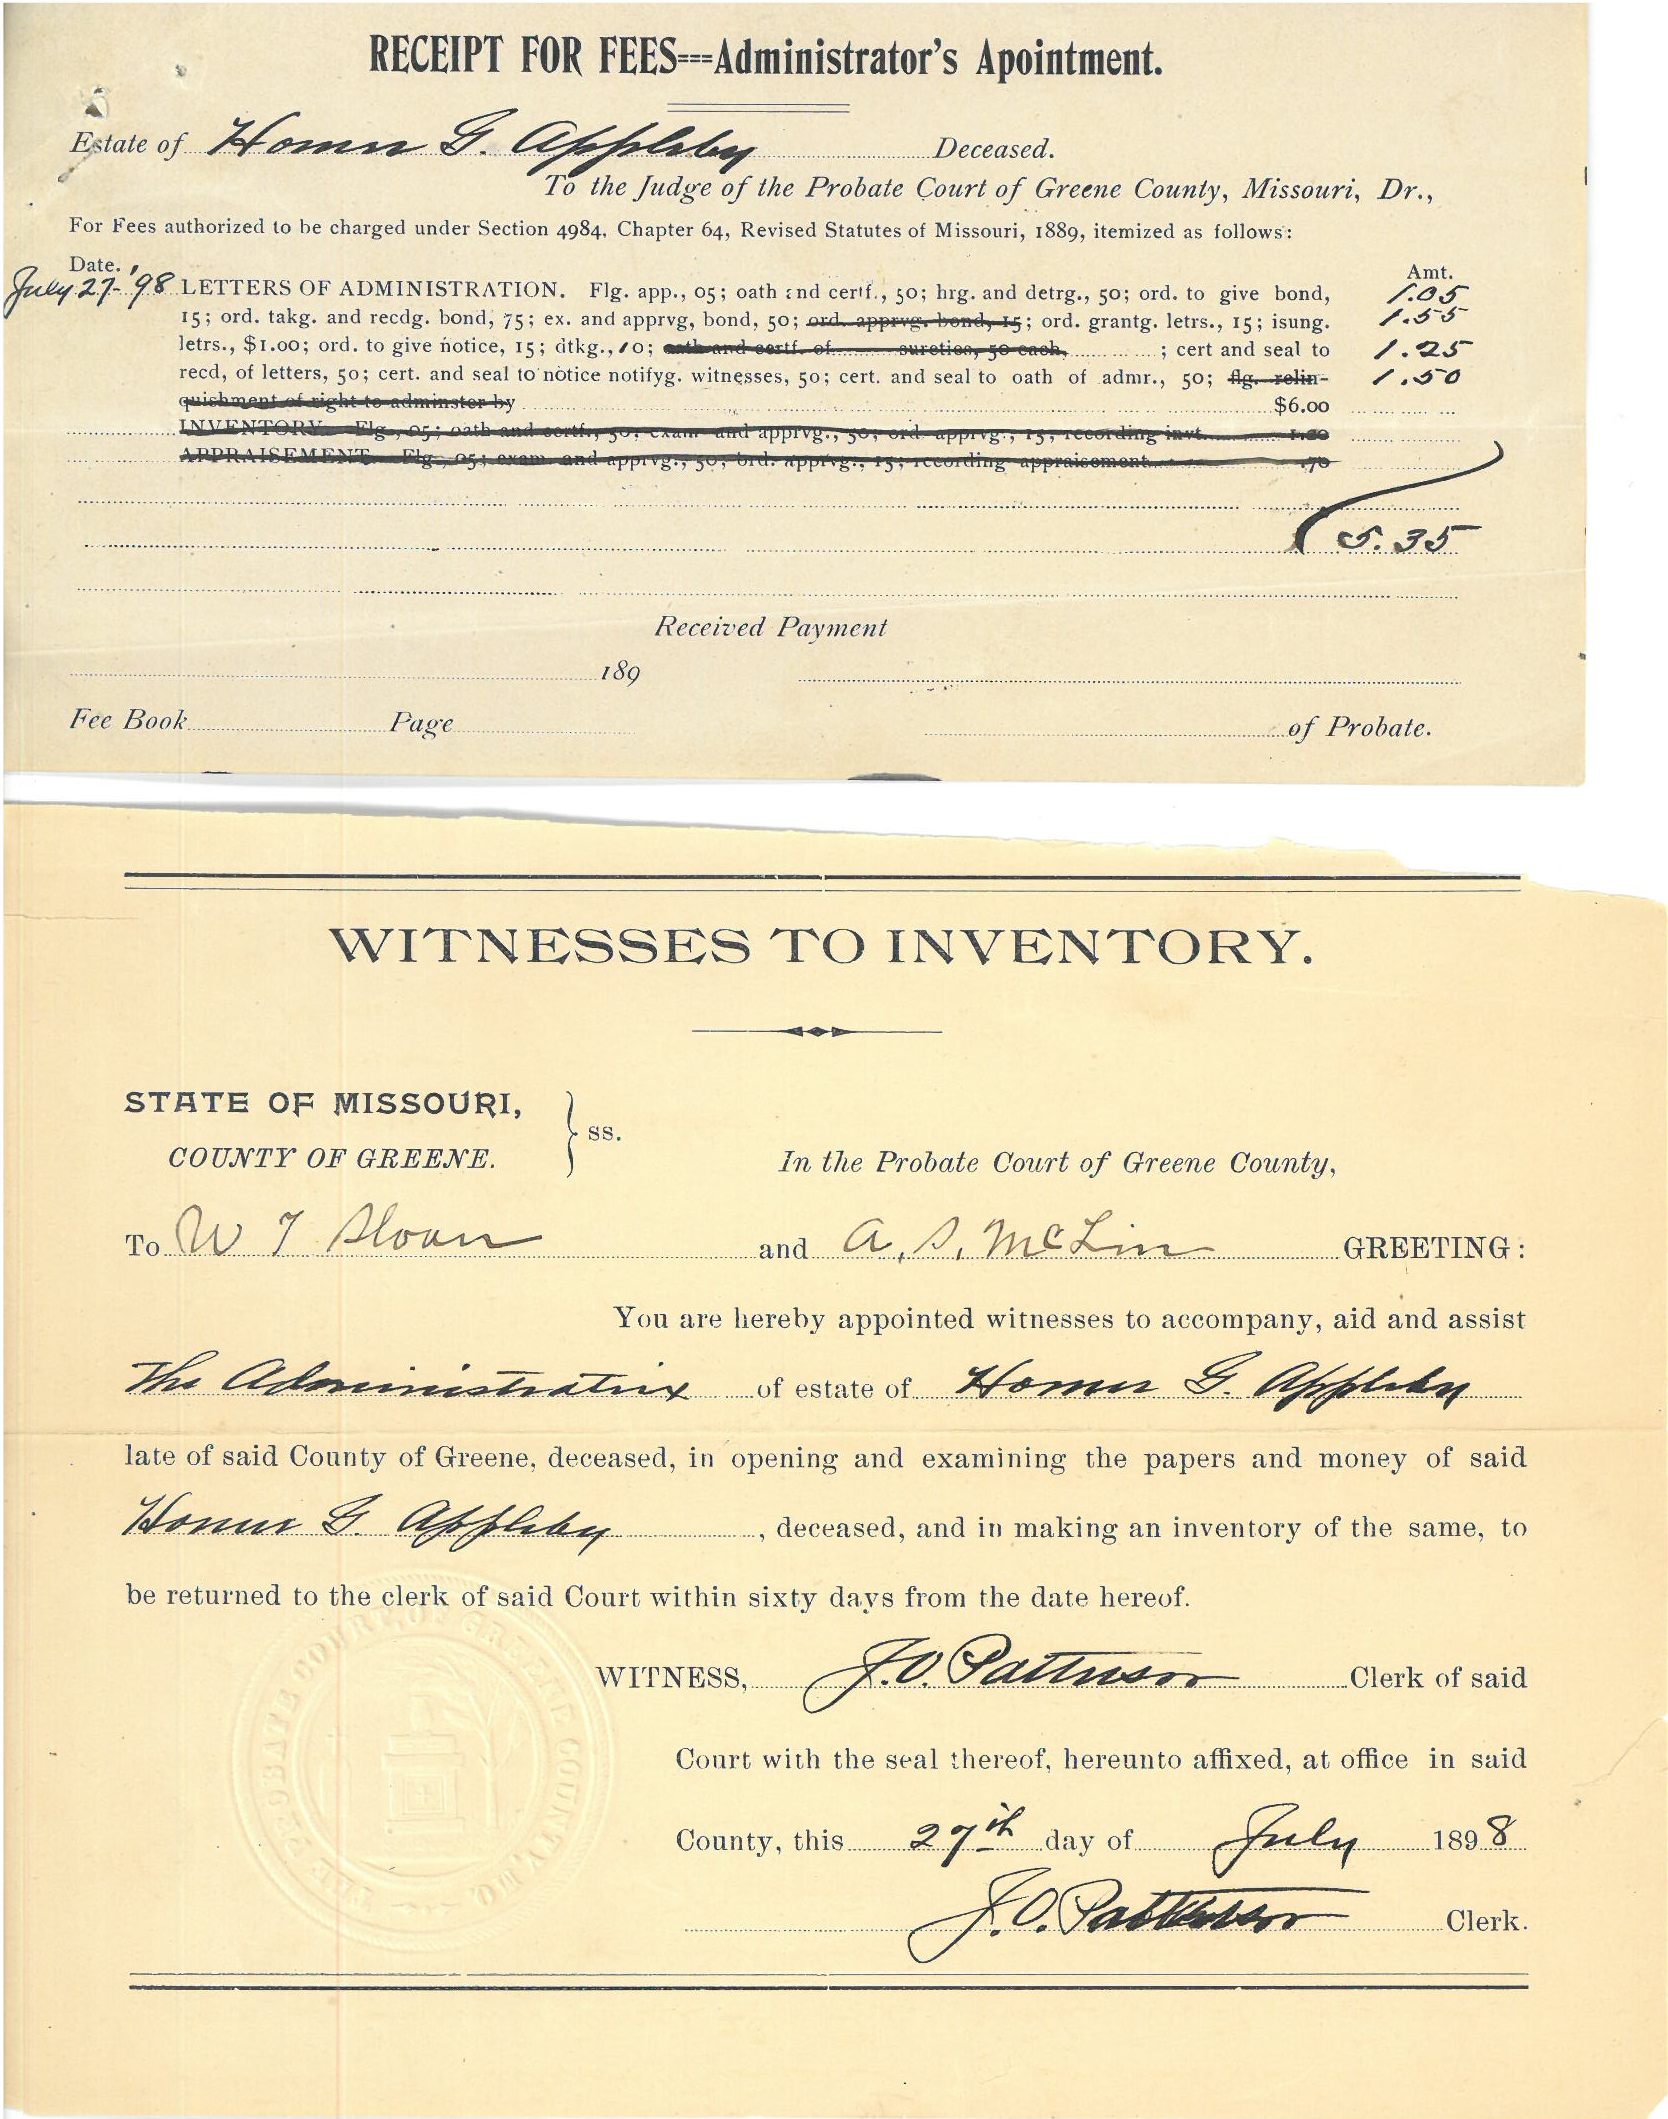 RECEIPT FOR FEES===Administrator's Apointment.
Estate of Homer G. Appleby Deceased.
To the Judge of the Probate Court of Greene County, Missouri, Dr.,
For Fees authorized to be charged under Section 4984, Chapter 64, Revised Statutes of Missouri, 1889, itemized as follows:
Date. Amt.
July 27-'98 LETTERS OF ADMINISTRATION. Flg. app., 05; oath and certf., 50; hrg. and detrg., 50; ord. to give bond, 1.05
15; ord. takg. and recdg. bond, 75; ex. and apprvg, bond, 50; ord. apprvg. bond, 15; ord. grantg. letrs., 15; isung. 1.55
letrs., $1.00; ord. to give notice, 15; dtkg., 10; oath and certf. of sureties, 50 each, ; cert and seal to 1.25
recd, of letters, 50; cert. and seal to notice notifyg. witnesses, 50; cert. and seal to oath of admr., 50; flg. relin- 1.50
quishment of right to adminster by $6.00
INVENTORY. Flg., 05; oath and certf., 50; exam. and apprvg., 50; ord. apprvg., 15; recording invt.
APPRAISEMENT. Flg., 05; exam. and apprvg., 50; ord. apprvg., 15; recording appraisement .70
5.35
Received Payment
189
Fee Book Page of Probate.
WITNESSES TO INVENTORY.
STATE OF MISSOURI,
COUNTY OF GREENE. } ss.
In the Probate Court of Greene County,
To W T Sloan and A. S. McLin GREETING:
You are hereby appointed witnesses to accompany, aid and assist
The Administratrix of estate of Homer G. Appleby
late of said County of Greene, deceased, in opening and examining the papers and money of said
Homer G. Appleby, deceased, and in making an inventory of the same, to
be returned to the clerk of said Court within sixty days from the date hereof.
WITNESS, J.O. Patterson Clerk of said
Court with the seal thereof, hereunto affixed, at office in said
County, this 27th day of July 1898
J.O. Patterson Clerk.
THE PROBATE COURT OF GREENE COUNTY, MO.